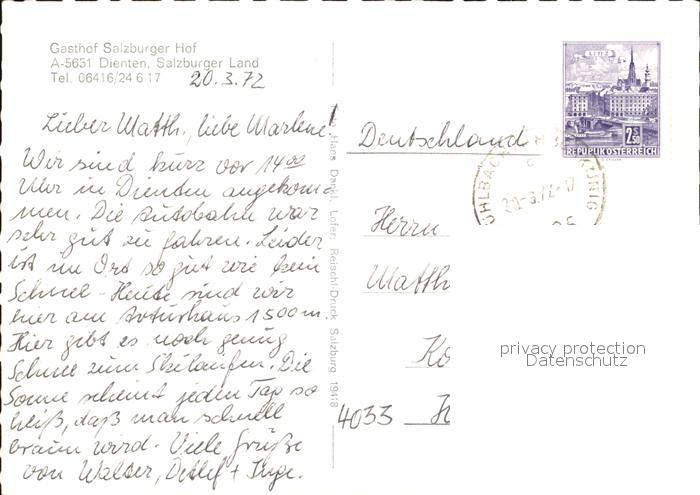 Gasthof Salzburger Hof
A-5651 Dienten, Salzburger Land
Tel. 06416/24 6 17
20.3.72
Lieber Matth., liebe Marlene!
Wir sind kurz vor 14 00
Uhr in Dienten angekom
men. Die Autobahn war
sehr gut zu fahren. Leider
ist im Ort so gut wie kein
Schnee - Heute sind wir
hier am Arturhaus 1500 m.
Hier gibt es noch genug
Schnee zum Skilaufen. Die
Sonne scheint jeden Tag so
heiß, daß man schnell
braun wird. Viele Grüße
von Walter, Detlef + Inge.
Hans Dankl, Lofer, Reischl-Druck Salzburg 19418
LINZ
2 S 50
REPUBLIK ÖSTERREICH
HLBACH
KÖNIG
Deutschland
Herrn
Matth
Ko
4033
privacy protection
Datenschutz